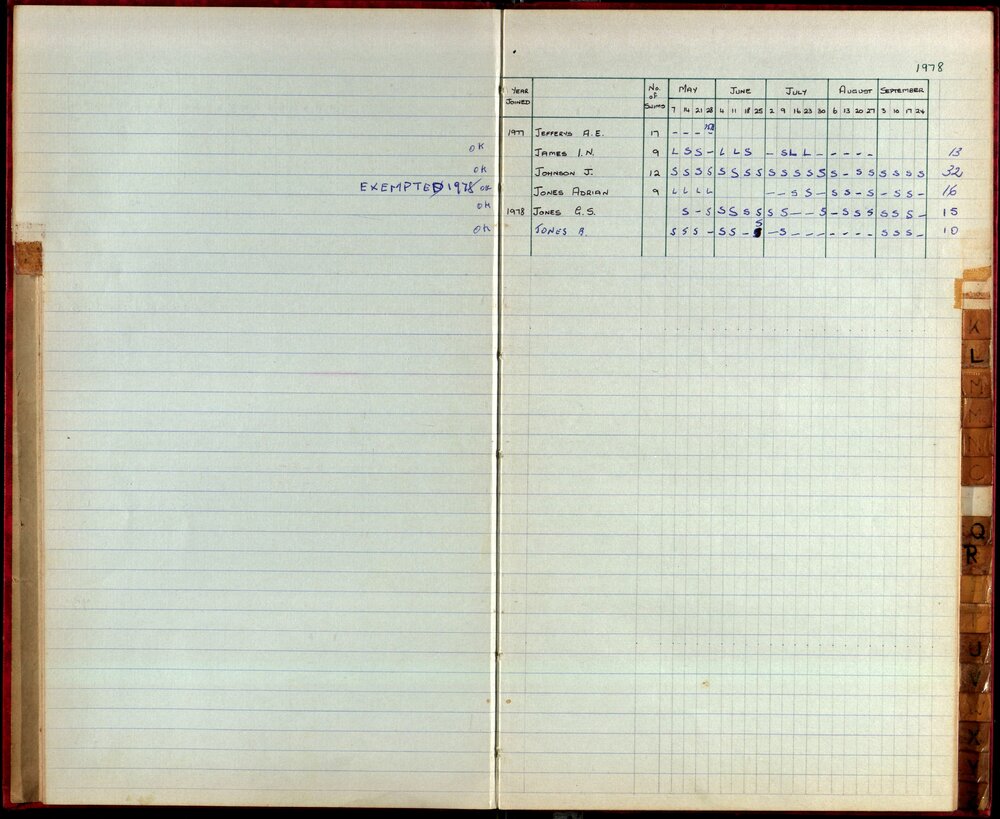 1978
YEAR JOINED No. OF SWIMS MAY JUNE JULY AUGUST SEPTEMBER
7 14 21 28 4 11 18 25 2 9 16 23 30 6 13 20 27 3 10 17 24
1977 JEFFERYS A.E. 17 - - - -
OK JAMES I.N. 9 L S S - L L S - S L L - - - - - 13
OK JOHNSON J. 12 S S S S S S S S S S S S S S - S S S S S S 32
EXEMPTED 1978 OK JONES ADRIAN 9 L L L L - - S S - S S - S - S S - 16
OK 1978 JONES G.S. S - S S S S S S S - - S - S S S S S S - 15
OK JONES B. S S S - S S - S - S - - - - - - - S S S - 10
K
L
M
M
N
O
Q
R
T
U
V
X